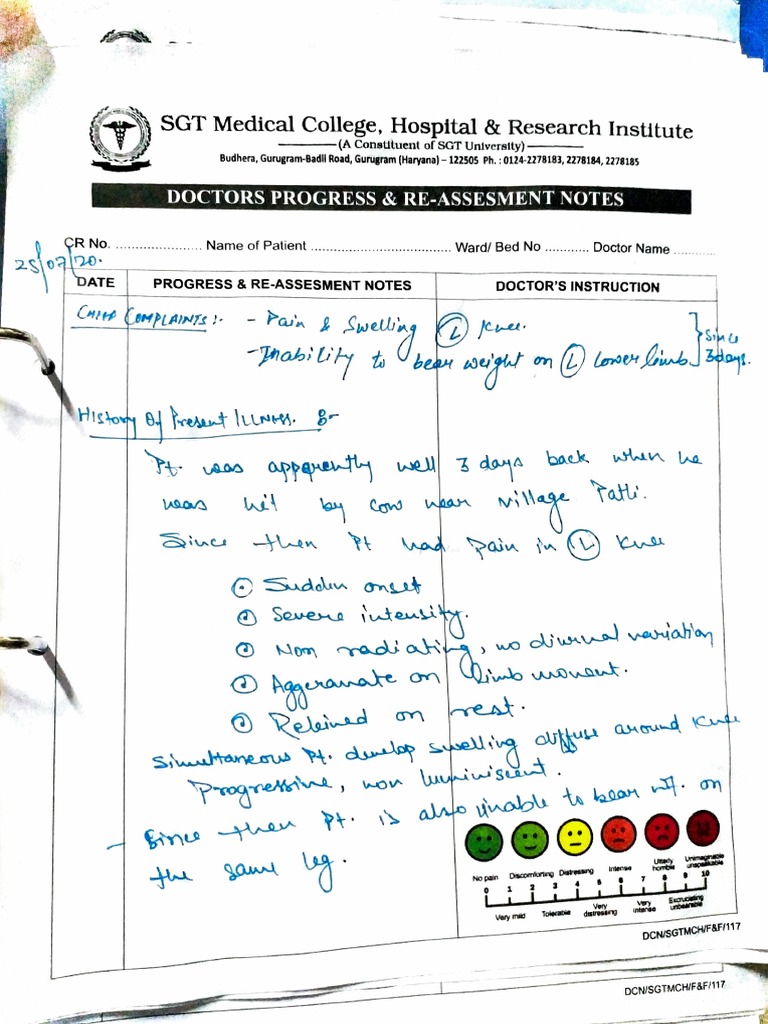 SGT Medical College, Hospital & Research Institute
(A Constituent of SGT University)
Budhera, Gurugram-Badli Road, Gurugram (Haryana) – 122505 Ph. : 0124-2278183, 2278184, 2278185
DOCTORS PROGRESS & RE-ASSESMENT NOTES
CR No. ...................... Name of Patient .................................... Ward/ Bed No ........... Doctor Name ...........
25/07/20.
DATE PROGRESS & RE-ASSESMENT NOTES DOCTOR'S INSTRUCTION
Chief Complaints :- - Pain & Swelling (L) Knee.
- Inability to bear weight on (L) Lower limb. } Since 3 days.
History Of Present Illness. :-
Pt. was apparently well 3 days back when he
was hit by cow near village Patli.
Since then Pt had pain in (L) Knee
Sudden onset
Severe intensity.
Non radiating, no diurnal variation
Aggeranate on limb monent.
Releined on rest.
Simultaneous Pt. develop swelling diffuse around Knee
Progressive, non luminiscent.
- Since then Pt. is also unable to bear wt. on
the same leg.
No pain Discomforting Distressing Intense Utterly horrible Unimaginable unspeakable
0 1 2 3 4 5 6 7 8 9 10
Very mild Tolerable Very distressing Very intense Excruciating unbearable
DCN/SGTMCH/F&F/117
DCN/SGTMCH/F&F/117